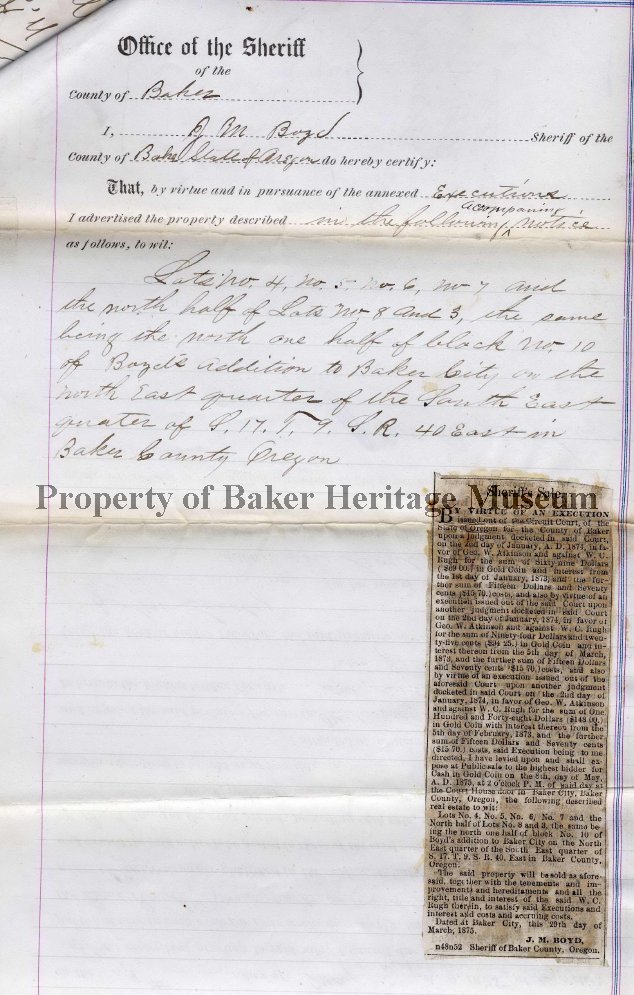 Office of the Sheriff
of the
County of Baker
I, J M Boyd Sheriff of the
County of Baker State of Oregon do hereby certify:
That, by virtue and in pursuance of the annexed Executions
acompaning
I advertised the property described in the following notice
as follows, to wit:
Lots No. 4, No. 5, No. 6, No 7 and
the north half of Lots No 8 and 3, the same
being the north one half of block No. 10
of Boyd's addition to Baker City on the
north East quarter of the South East
quater of S. 17. T. 9. S. R. 40 East in
Baker County Oregon
Property of Baker Heritage Museum
Sheriff's Sale
BY VIRTUE OF AN EXECUTION
issued out of the Circuit Court, of the
State of Oregon for the County of Baker
upon a judgment docketed in said Court,
on the 2nd day of January, A. D. 1874, in fa-
vor of Geo. W. Atkinson and against W. C.
Rugh for the sum of Sixty-nine Dollars
($69 00.) in Gold Coin and interest from
the 1st day of January, 1873, and the fur-
ther sum of Fifteen Dollars and Seventy
cents ($15 70.) costs, and also by virtue of an
execution issued out of the said Court upon
another judgment docketed in said Court
on the 2nd day of January, 1874, in favor of
Geo. W. Atkinson and against W. C. Rugh
for the sum of Ninety-four Dollars and twen-
ty-five cents ($94 25.) in Gold Coin and in-
terest thereon from the 5th day of March,
1873, and the further sum of Fifteen Dollars
and Seventy cents ($15 70.) costs, and also
by virtue of an execution issued out of the
aforesaid Court upon another judgment
docketed in said Court on the 2nd day of
January, 1874, in favor of Geo. W. Atkinson
and against W. C. Rugh for the sum of One
Hundred and Forty-eight Dollars ($148 00.)
in Gold Coin with interest thereon from the
5th day of February, 1873, and the further
sum of Fifteen Dollars and Seventy cents
($15 70.) costs, said Execution being to me
directed, I have levied upon and shall ex-
pose at Public sale to the highest bidder for
Cash in Gold Coin on the 8th, day of May,
A. D. 1875, at 2 o'clock P. M. of said day at
the Court House door in Baker City, Baker
County, Oregon, the following described
real estate to wit:
Lots No. 4, No. 5, No. 6, No. 7 and the
North half of Lots No. 8 and 3, the same be-
ing the north one half of block No. 10 of
Boyd's addition to Baker City on the North
East quarter of the South East quarter of
S. 17. T. 9. S. R. 40. East in Baker County,
Oregon.
The said property will be sold as afore-
said, together with the tenements and im-
provements and hereditaments and all the
right, title and interest of the said W. C.
Rugh therein, to satisfy said Executions and
interest and costs and accruing costs.
Dated at Baker City, this 29th day of
March, 1875.
J. M. BOYD,
n48n52 Sheriff of Baker County, Oregon.